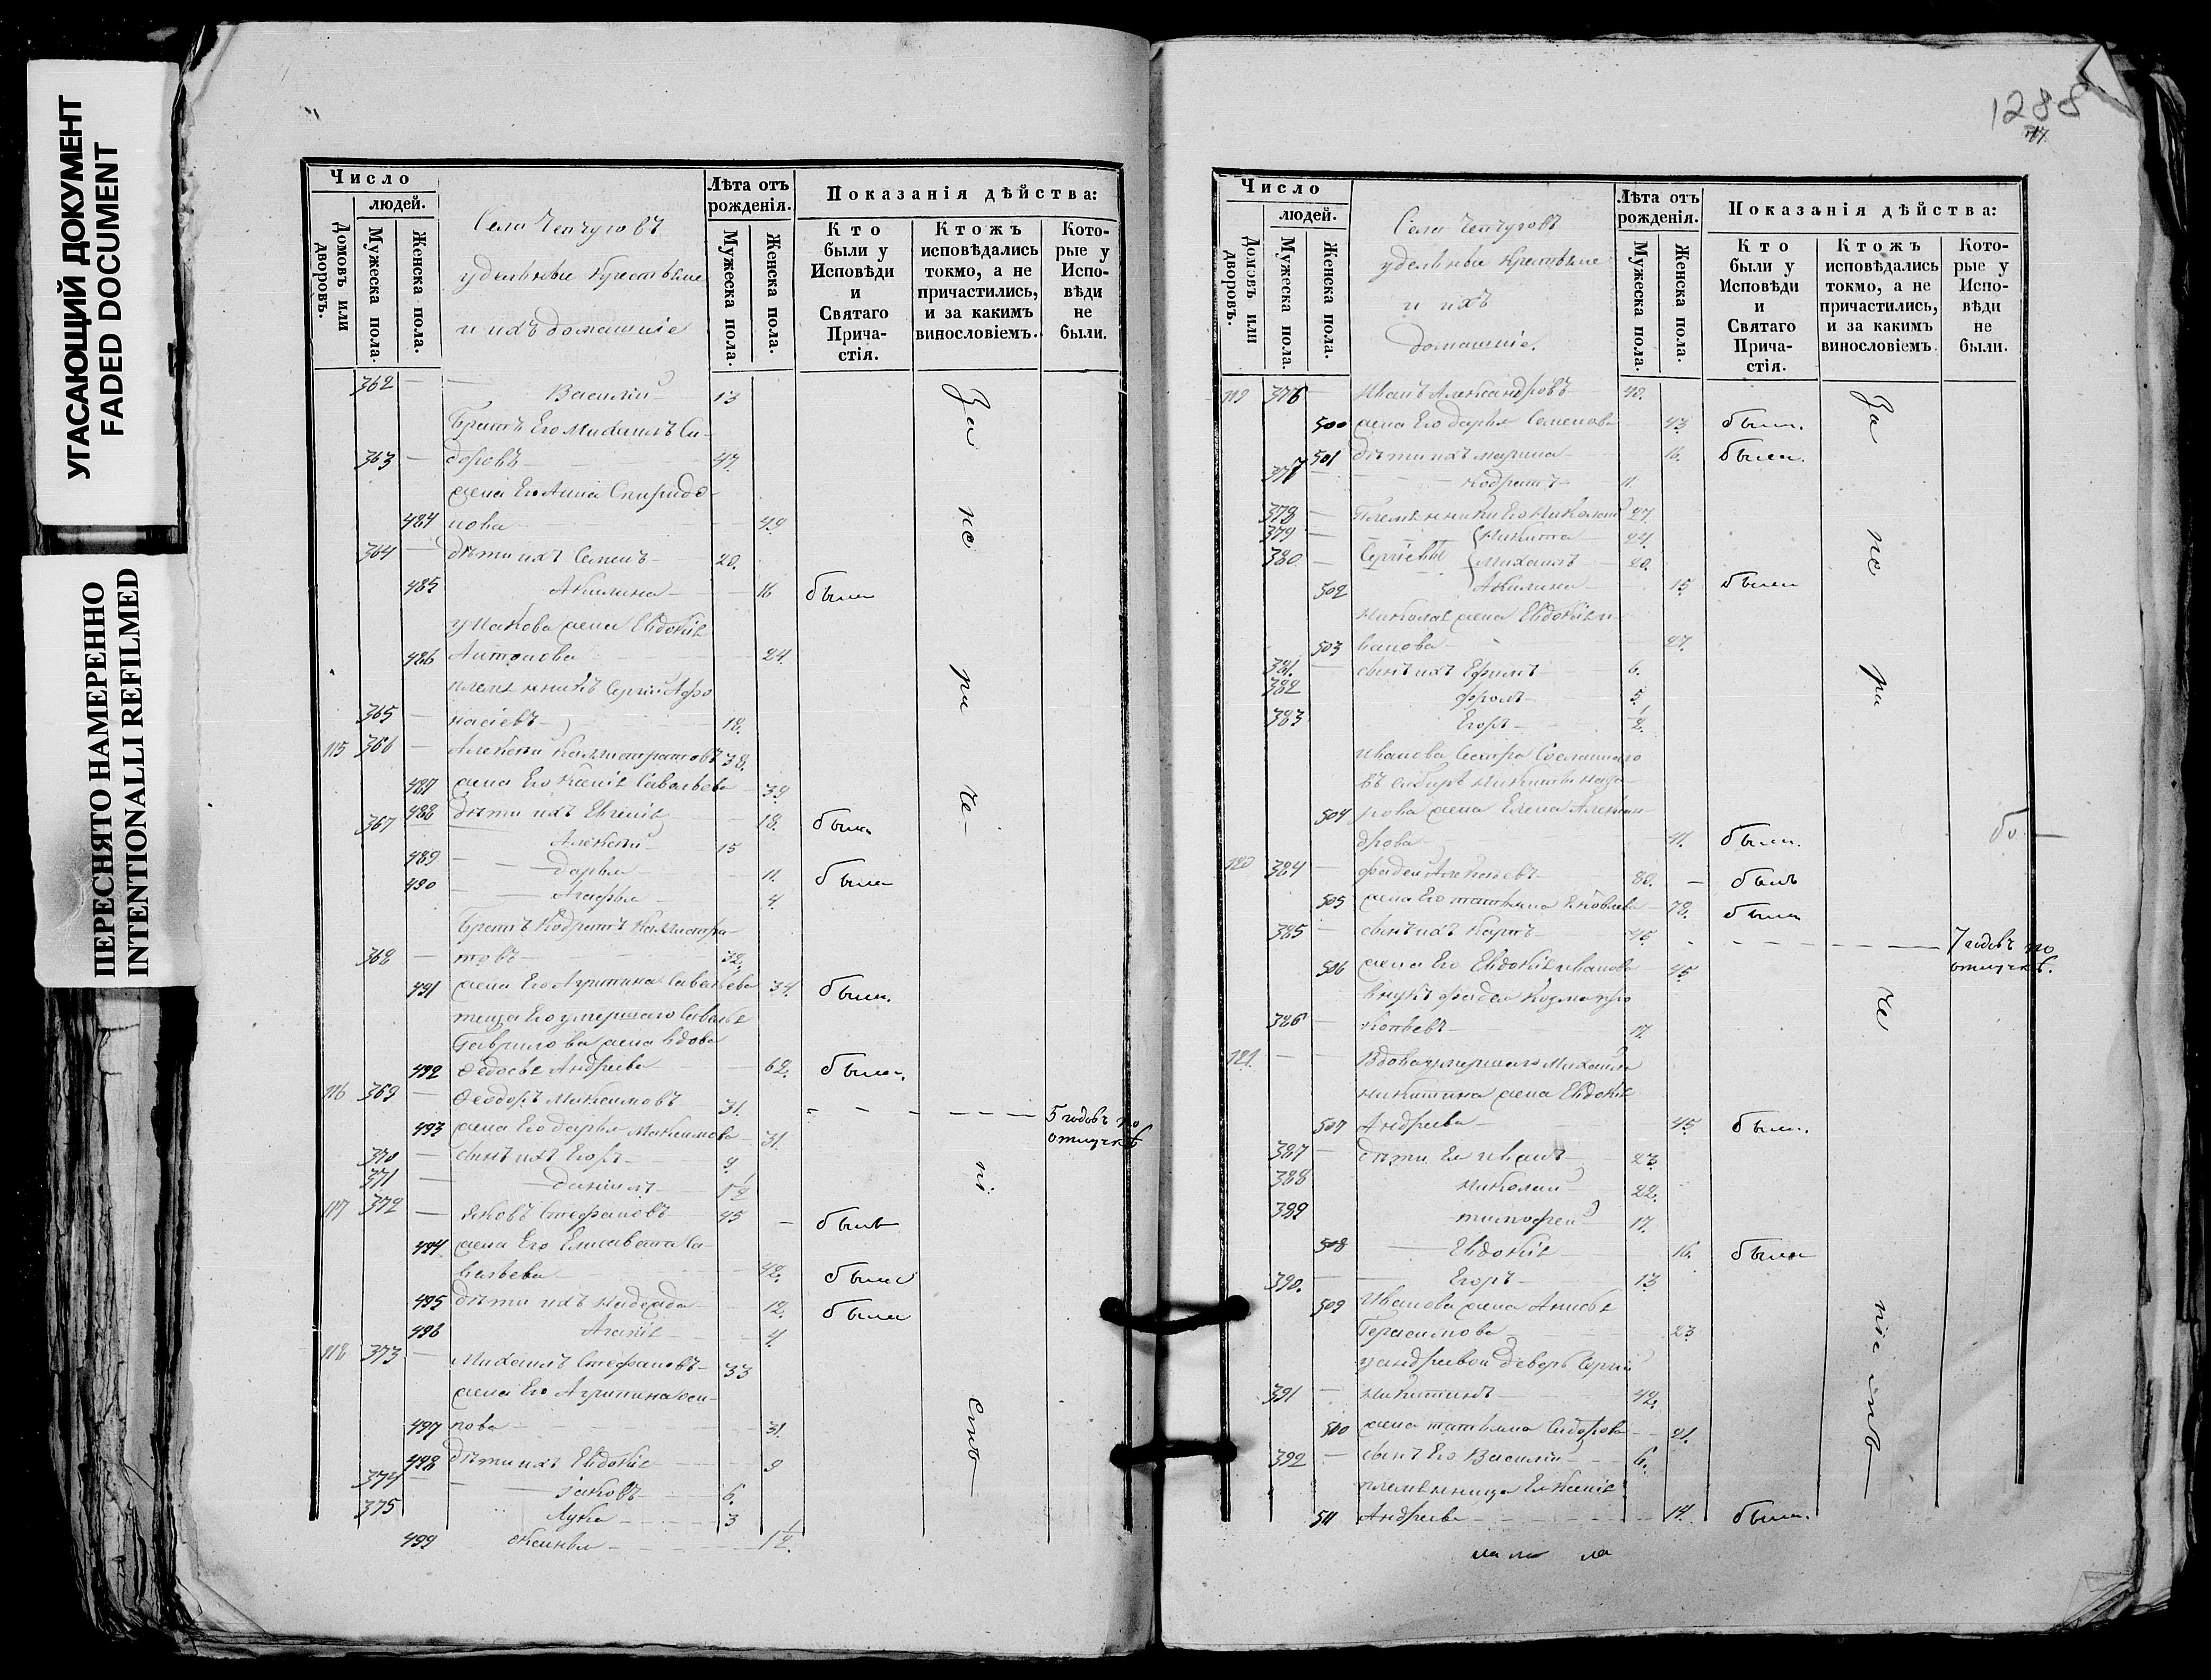 УГАСАЮЩИЙ ДОКУМЕНТ
FADED DOCUMENT
ПЕРЕСНЯТО НАМЕРЕННО
INTENTIONALLI REFILMED
Число
людей.
Домовъ или дворовъ.
Мужеска пола.
Женска пола.
Села Чепчуговъ
удельные крестьяне
и ихъ домашніе
Лѣта отъ рожденія.
Мужеска пола.
Женска пола.
Показанія дѣйства:
Кто были у Исповѣди и Святаго Причастія.
Ктожъ исповѣдались токмо, а не причастились, и за какимъ винословіемъ.
Которые у Исповѣди не были.
362 — Василій 13
Братъ Его Михаилъ Си-
363 — доровъ 47.
жена Его Анна Спиридо-
484 нова 49
364 — дѣти ихъ Семенъ 20.
485 Акилина 16 была
жена Евдокія
486 Антонова 24.
племянникъ Сергій Афо
365 — насіевъ 18.
115 366 — Алексѣй Каллистратовъ 38.
487 жена Его Ксенія Савельева 39.
488 дѣти ихъ Евгенія 18. была
367 — Алексѣй 15
489 Дарья 11. была
490 Агафья 4.
Братъ Кодратъ Каллистра-
368 — товъ 32.
491 жена Его Агрипина Савельева 34. была.
теща Его умершаго Савелья
Гаврилова жена вдова
492 Ѳедосья Андреева 62. была.
116 369 — Ѳеодоръ Максимовъ 31. 5 годовъ по
493 жена Его Дарья Максимова 31. отлучкѣ
370 — сынъ ихъ Егоръ 9.
371 — Даніилъ 1½
117 372 — Яковъ Стефановъ 45 — былъ
494 жена Его Елисавета Са-
вельева 42. была
495 дѣти ихъ Надежда 12. была
496 Агапія 4.
118 373 — Михаилъ Стефановъ 33
жена Его Агрипина Оси-
497 пова 31.
498 дѣти ихъ Евдокія 9
374 — Іаковъ 6.
375 Лука 3
499 Ксенья 1½.
За не ра че ні емъ
1288
Число
людей.
Домовъ или дворовъ.
Мужеска пола.
Женска пола.
Села Чепчуговъ
удельные крестьяне
и ихъ
домашніе.
Лѣта отъ рожденія.
Мужеска пола.
Женска пола.
Показанія дѣйства:
Кто были у Исповѣди и Святаго Причастія.
Ктожъ исповѣдались токмо, а не причастились, и за какимъ винословіемъ.
Которые у Исповѣди не были.
119 376 — Иванъ Александровъ 42.
500 жена Его Дарья Семенова 43. была.
501 дѣти ихъ Марина 16. была.
377 — Кодратъ 11
378 — Племянники Его Николай 27.
379 — Никита 24.
380 — Сергіевы Михаилъ 20.
502 Акилина 15 была
Николая жена Евдокія И-
503 ванова 27.
381. — сынъ ихъ Ефимъ 6.
382 Фролъ 5.
383 Егоръ ½.
Иванова сестра Сосланнаго
въ сибирь Никиты Наза-
504 рова жена Елена Алексан-
дрова 41. была.
120 384 — Фадей Алексѣевъ 80. — былъ
505 жена Его Татьяна Яковлева 78. была
385 — сынъ ихъ Карпъ 46. 7 годовъ по
506 жена Его Евдокія Иванова 45 отлучкѣ.
внукъ Фадея Козма Про
386 — копьевъ 17.
121. — — Вдова умершаго Михаила
Никитина жена Евдокія
507 Андреева 45. была.
387 — дѣти Ея Иванъ 23
388 Николай 22.
389 Тимофей 17.
508 — Евдокія 16. была
390. — Егоръ 13
509 Иванова жена Анисья
Герасимова 23
У Андреевой деверь Сергій
391 — Никитинъ 42.
500 жена Татьяна Сидорова 41.
392 — сынъ Его Василій 6.
племянница Ея Ксенія
511 Андреева 14. была.
За не ра че ніе мъ